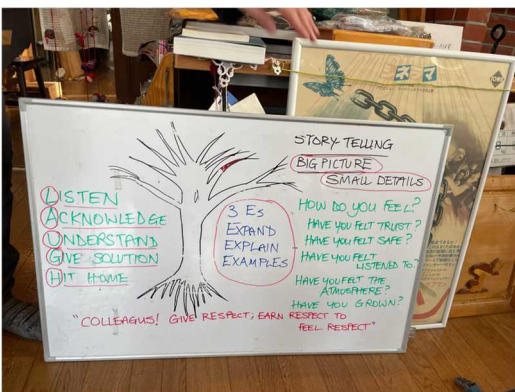 LISTEN
ACKNOWLEDGE
UNDERSTAND
GIVE SOLUTION
HIT HOME
3 Es
EXPAND
EXPLAIN
EXAMPLES
STORY TELLING
BIG PICTURE
SMALL DETAILS
HOW DO YOU FEEL?
HAVE YOU FELT TRUST?
HAVE YOU FELT SAFE?
HAVE YOU FELT
LISTENED TO?
HAVE YOU FELT THE
ATMOSPHERE?
HAVE YOU GROWN?
"COLLEAGUS! GIVE RESPECT; EARN RESPECT TO
FEEL RESPECT"
ネマ